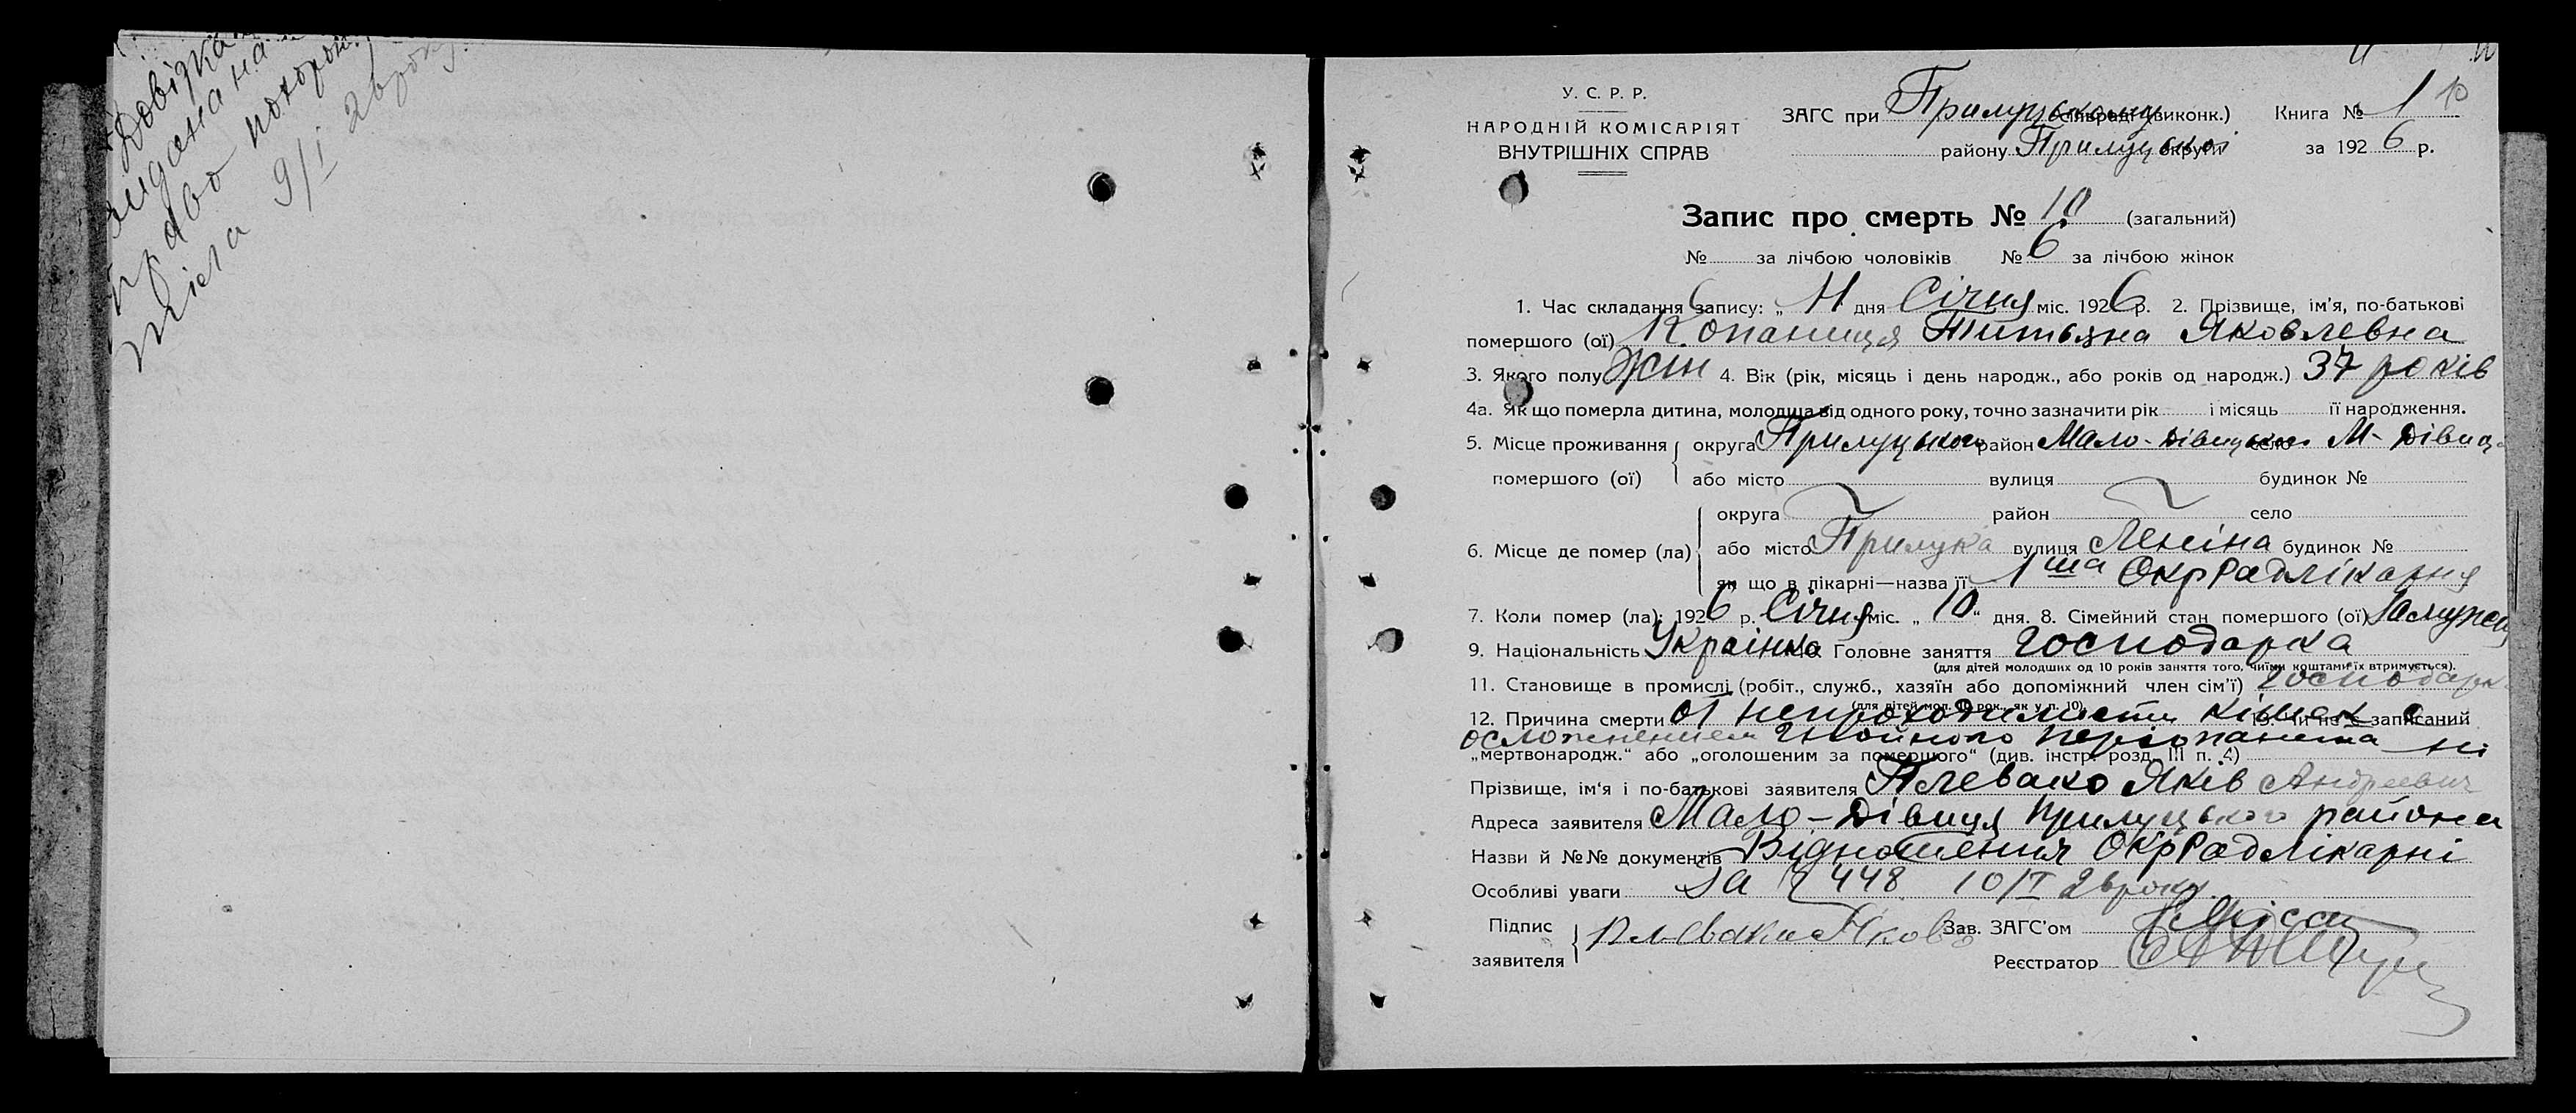 Довідка
видана на
право похорон.
тіла 9/I 26 року
У. С. Р. Р.
НАРОДНІЙ КОМІСАРІЯТ
ВНУТРІШНІХ СПРАВ
ЗАГС при Прилуцькому (сільраді, виконк.) Книга № 1
району Прилуцької округи за 1926 р.
Запис про смерть № 10 (загальний)
№ за лічбою чоловіків № 6 за лічбою жінок
1. Час складання запису: „ 11 дня Січня міс. 1926 р. 2. Прізвище, ім'я, по-батькові
помершого (ої) Копаниця Титьяна Яковлевна
3. Якого полу Жін 4. Вік (рік, місяць і день народж., або років од народж.) 37 років
4а. Як що померла дитина, молодша від одного року, точно зазначити рік і місяць її народження.
5. Місце проживання округа Прилуцького район Мало-Дівицького село М-Дівиця
помершого (ої) або місто вулиця будинок №
округа район село
6. Місце де помер (ла) або місто Прилука вулиця Леніна будинок №
як що в лікарні—назва її 1ша ОкрРадлікарня
7. Коли помер (ла): 1926 р. Січня міс. „ 10 “ дня. 8. Сімейний стан помершого (ої) Замужем
9. Національність Українка Головне заняття господарка
(для дітей молодших од 10 років заняття того, чиїми коштами їх втримується).
11. Становище в промислі (робіт., служб., хазяїн або допоміжний член сім'ї) господарк
(для дітей мол. 10 рок., як у п. 10)
12. Причина смерти от непроходимости кишек с 13. Чи не є записаний
осложнением гнойного перітонита ні
„мертвонародж.“ або „оголошеним за помершого“ (див. інстр. розд. III п. 4)
Прізвище, ім'я і по-батькові заявителя Плевако Яків Андреевич
Адреса заявителя Мало-Дівиця Прилуцького района
Назви й №№ документів Відношення ОкрРадлікарні
Особливі уваги За № 448 10/I 26 року
Підпис Плевако Яков Зав. ЗАГС'ом
заявителя Реєстратор